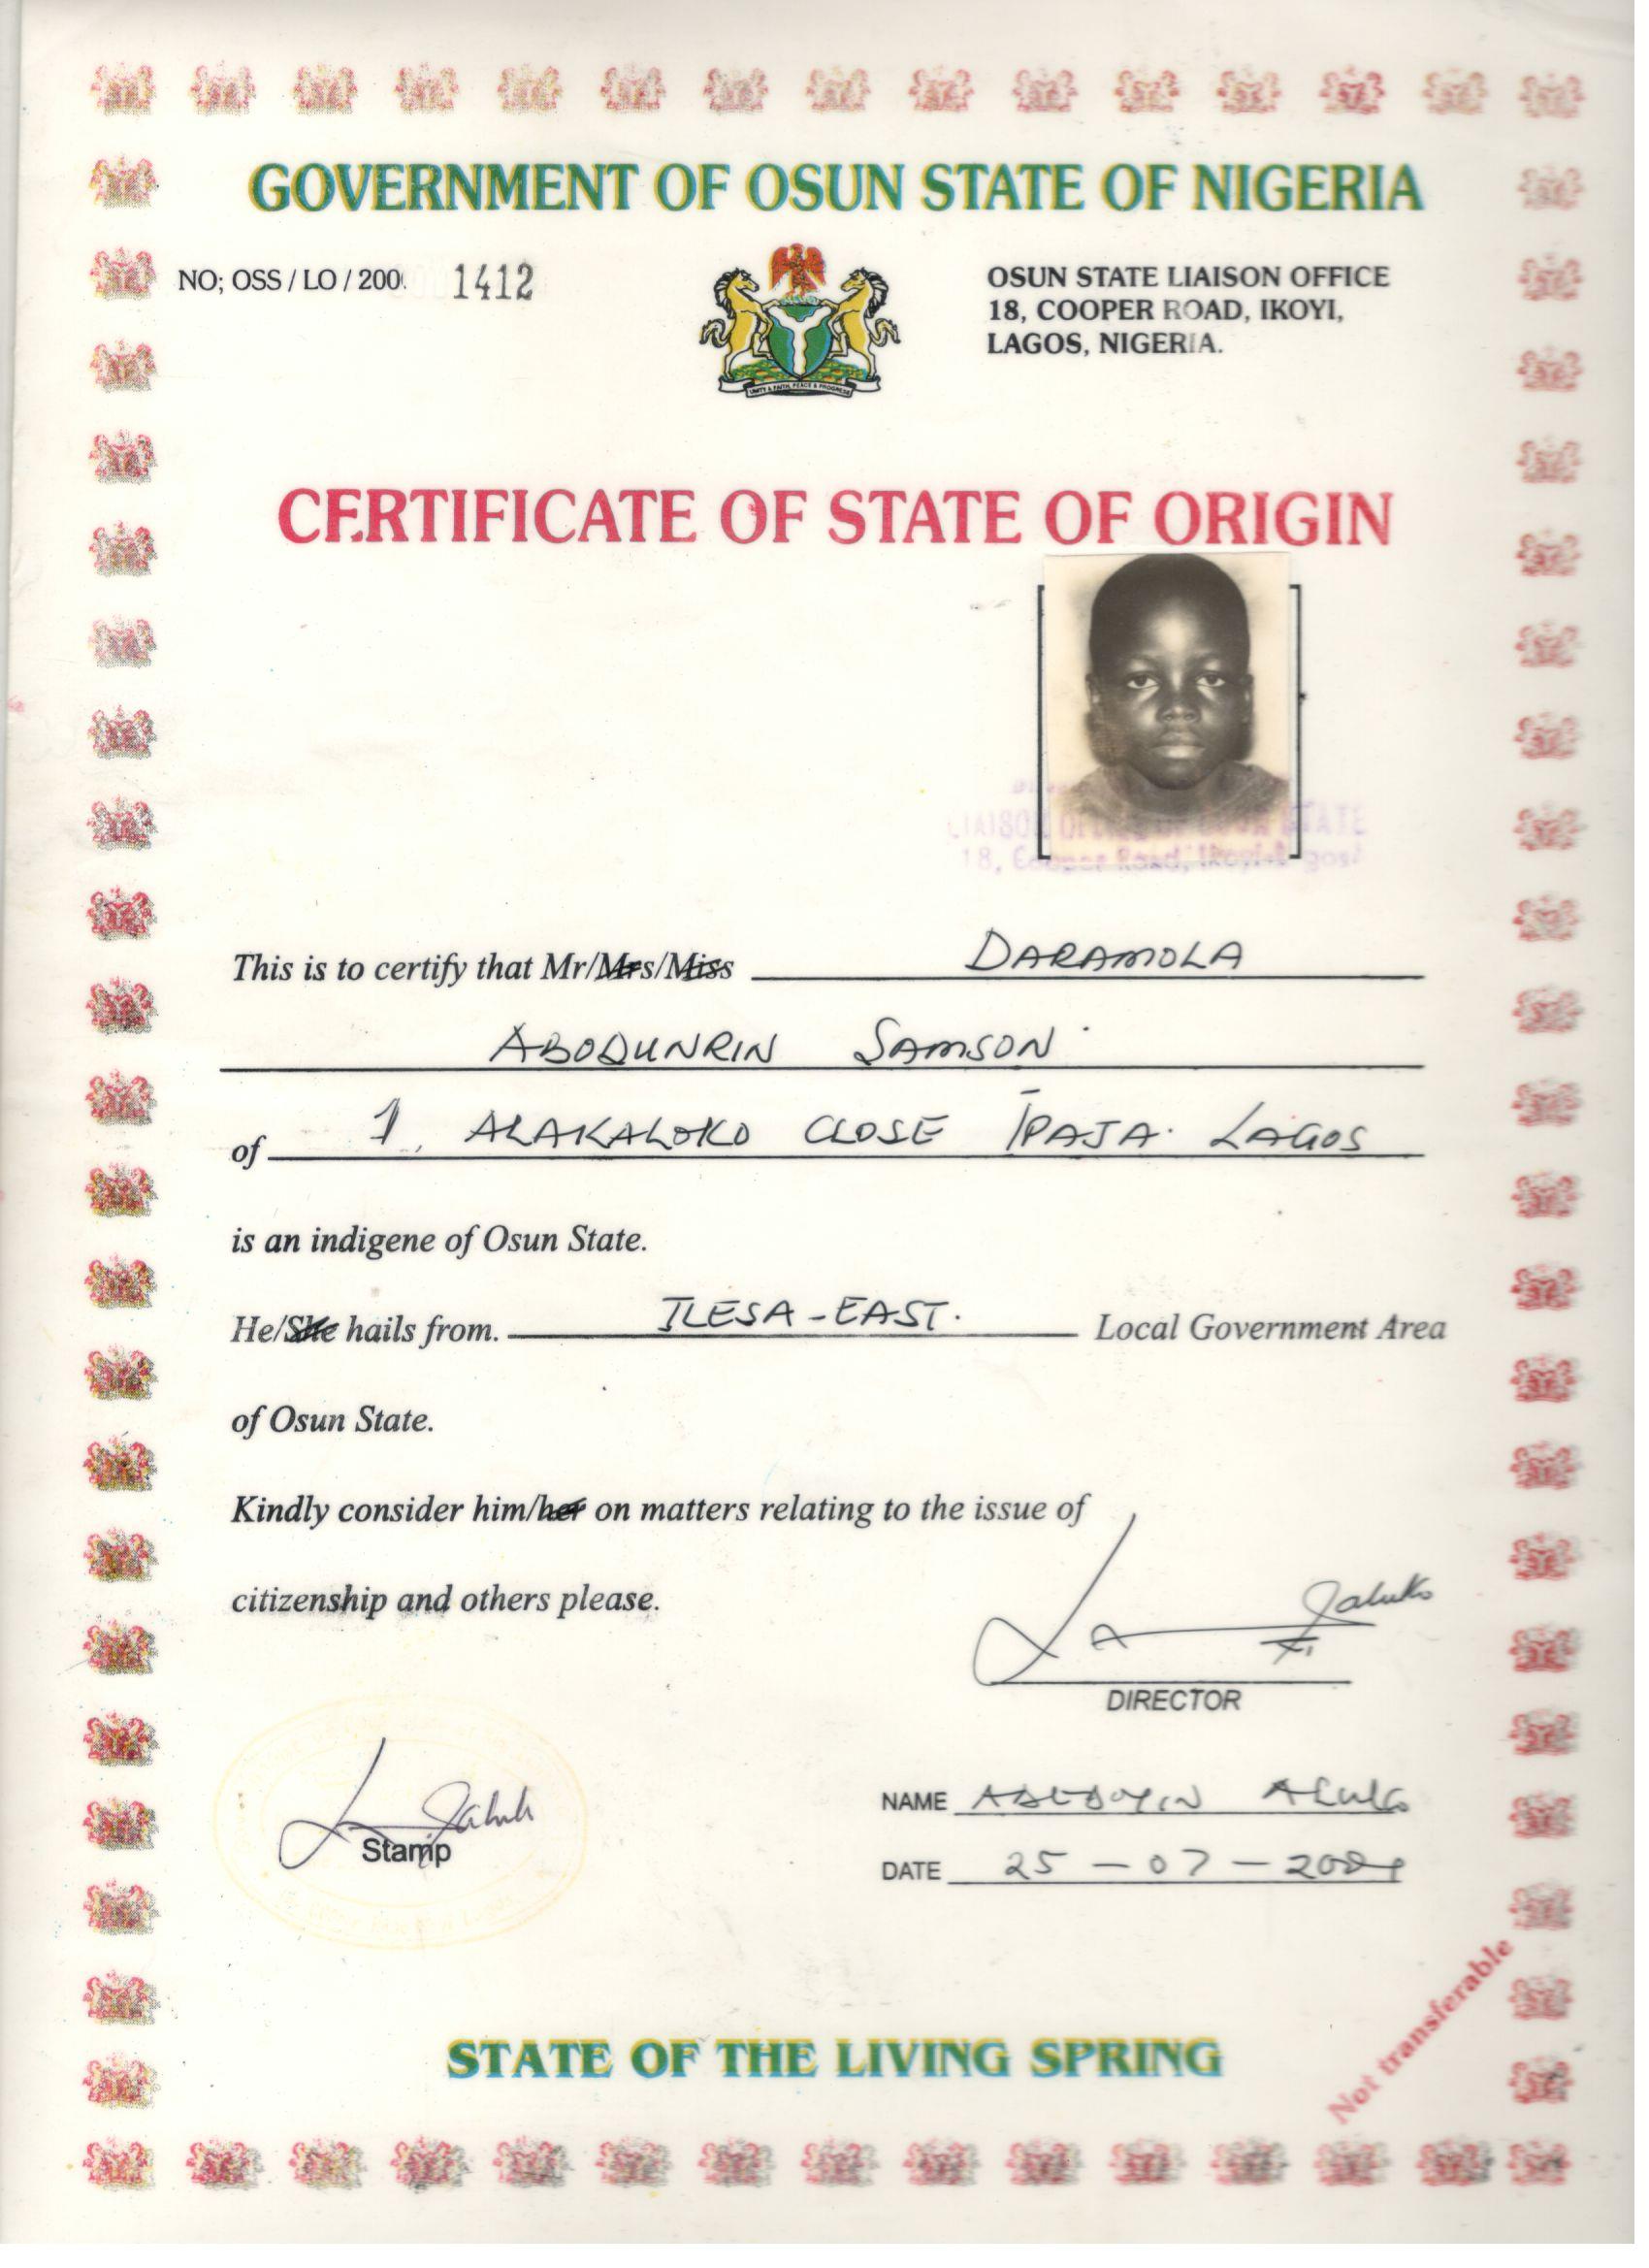 GOVERNMENT OF OSUN STATE OF NIGERIA
NO; OSS / LO / 200 1412
OSUN STATE LIAISON OFFICE
18, COOPER ROAD, IKOYI,
LAGOS, NIGERIA.
UNITY & FAITH, PEACE & PROGRESS
CERTIFICATE OF STATE OF ORIGIN
LIAISON OFFICE OF OSUN STATE
18, Cooper Road, Ikoyi-Lagos
This is to certify that Mr/Mrs/Miss DARAMOLA
ABODUNRIN SAMSON
of 1, ALAKALOKO CLOSE IPAJA. LAGOS
is an indigene of Osun State.
He/She hails from. ILESA-EAST. Local Government Area
of Osun State.
Kindly consider him/her on matters relating to the issue of
citizenship and others please.
DIRECTOR
Stamp
NAME ADEDOYIN ALUKO
DATE 25-07-
STATE OF THE LIVING SPRING
Not transferable